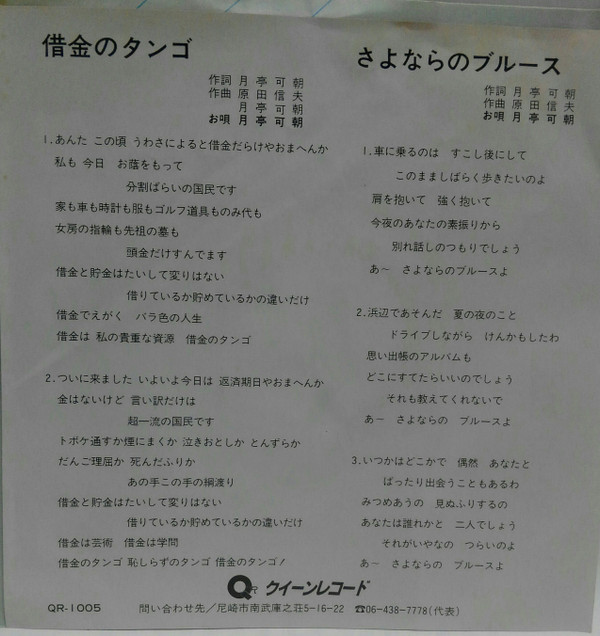 借金のタンゴ
作詞 月亭可朝
作曲 原田信夫
月亭可朝
お唄 月亭可朝
1.あんた この頃 うわさによると借金だらけやおまへんか
私も 今日 お蔭をもって
分割ばらいの国民です
家も車も時計も服もゴルフ道具ものみ代も
女房の指輪も先祖の墓も
頭金だけすんでます
借金と貯金はたいして変りはない
借りているか貯めているかの違いだけ
借金でえがく バラ色の人生
借金は 私の貴重な資源 借金のタンゴ
2.ついに来ました いよいよ今日は 返済期日やおまへんか
金はないけど 言い訳だけは
超一流の国民です
トボケ通すか煙にまくか 泣きおとしか とんずらか
だんご理屈か 死んだふりか
あの手この手の綱渡り
借金と貯金はたいして変りはない
借りているか貯めているかの違いだけ
借金は芸術 借金は学問
借金のタンゴ 恥しらずのタンゴ 借金のタンゴ!
さよならのブルース
作詞 月亭可朝
作曲 原田信夫
お唄 月亭可朝
1.車に乗るのは すこし後にして
このまましばらく歩きたいのよ
肩を抱いて 強く抱いて
今夜のあなたの素振りから
別れ話しのつもりでしょう
あ〜 さよならのブルースよ
2.浜辺であそんだ 夏の夜のこと
ドライブしながら けんかもしたわ
思い出帳のアルバムも
どこにすてたらいいのでしょう
それも教えてくれないで
あ〜 さよならの ブルースよ
3.いつかはどこかで 偶然 あなたと
ばったり出会うこともあるわ
みつめあうの 見ぬふりするの
あなたは誰れかと 二人でしょう
それがいやなの つらいのよ
あ〜 さよならの ブルースよ
QR クイーンレコード
QR-1005 問い合わせ先/尼崎市南武庫之荘5-16-22 ☎06-438-7778(代表)